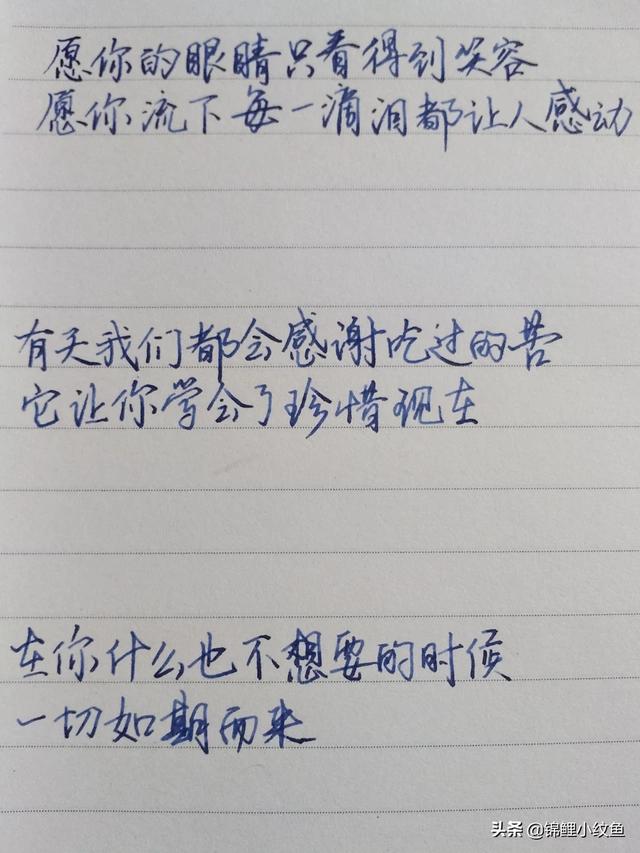 愿你的眼睛只看得到笑容
愿你流下每一滴泪都让人感动
有天我们都会感谢吃过的苦
它让你学会了珍惜现在
在你什么也不想要的时候
一切如期而来
头条 @锦鲤小纹鱼